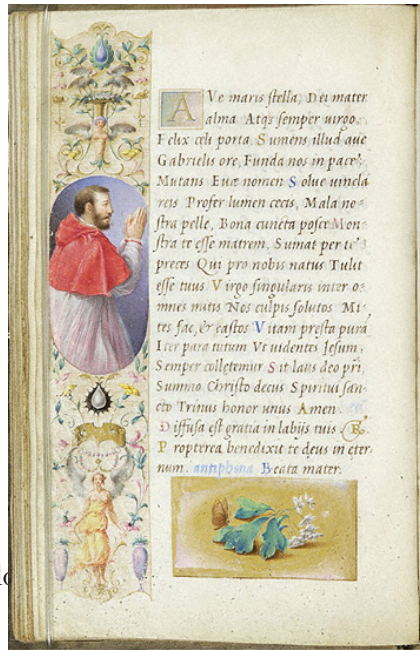 AVe maris ſtella, Dei mater
alma Atqꝫ ſemper uirgo,
Felix cęli porta Sumens illud aue
Gabrielis ore, Funda nos in pace,
Mutans Euæ nomen Solue uincla
reis Profer lumen cecis, Mala no⸗
ſtra pelle, Bona cuncta poſce Mon⸗
ſtra te eſſe matrem, Sumat per te
preces Qui pro nobis natus Tulit
eſſe tuus Virgo ſingularis inter o⸗
mnes mitis Nos culpis ſolutos Mi⸗
tes fac, & caſtos Vitam preſta purā
Iter para tutum Vt uidentes Jeſum,
Semper collętemur Sit laus deo pri,
Summo Chriſto decus Spiritui ſan⸗
cto Trinus honor unus Amen
Diffuſa eſt gratia in labijs tuis ℞
Propterea benedixit te deus in eter⸗
num. antiphona Beata mater.